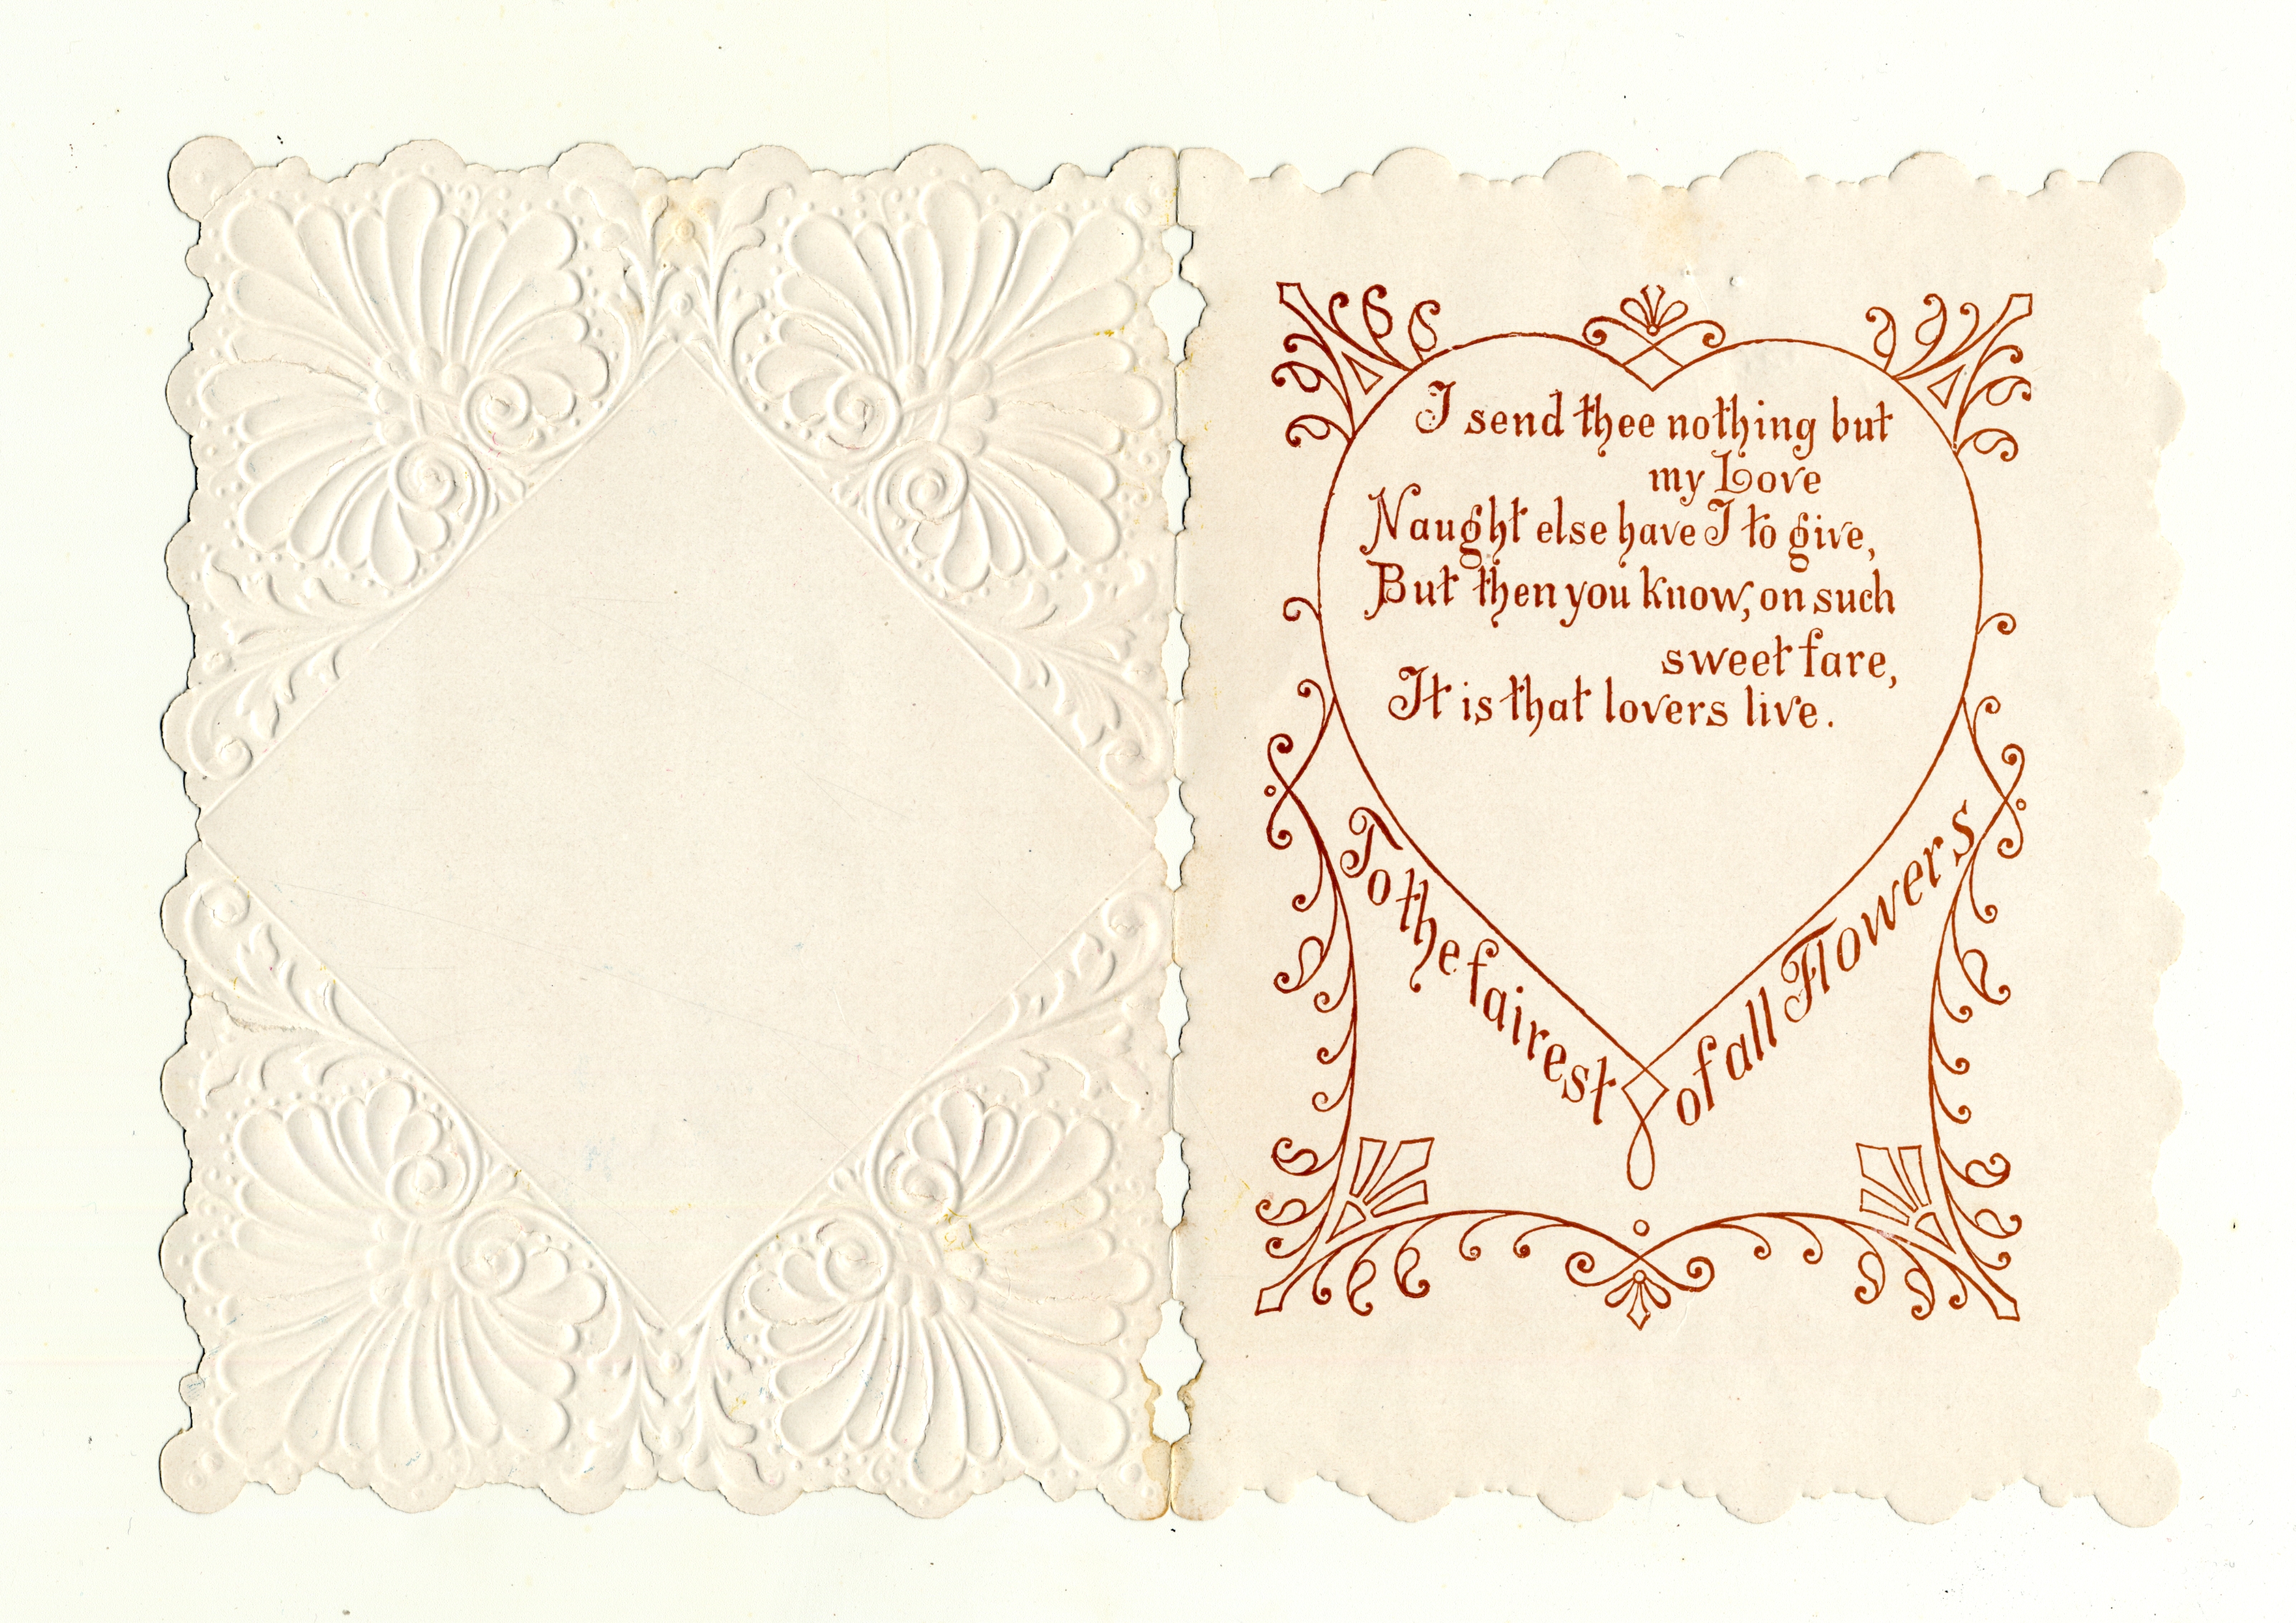 I send thee nothing but
my Love
Naught else have I to give,
But then you know, on such
sweet fare,
It is that lovers live.
To the fairest
of all Flowers